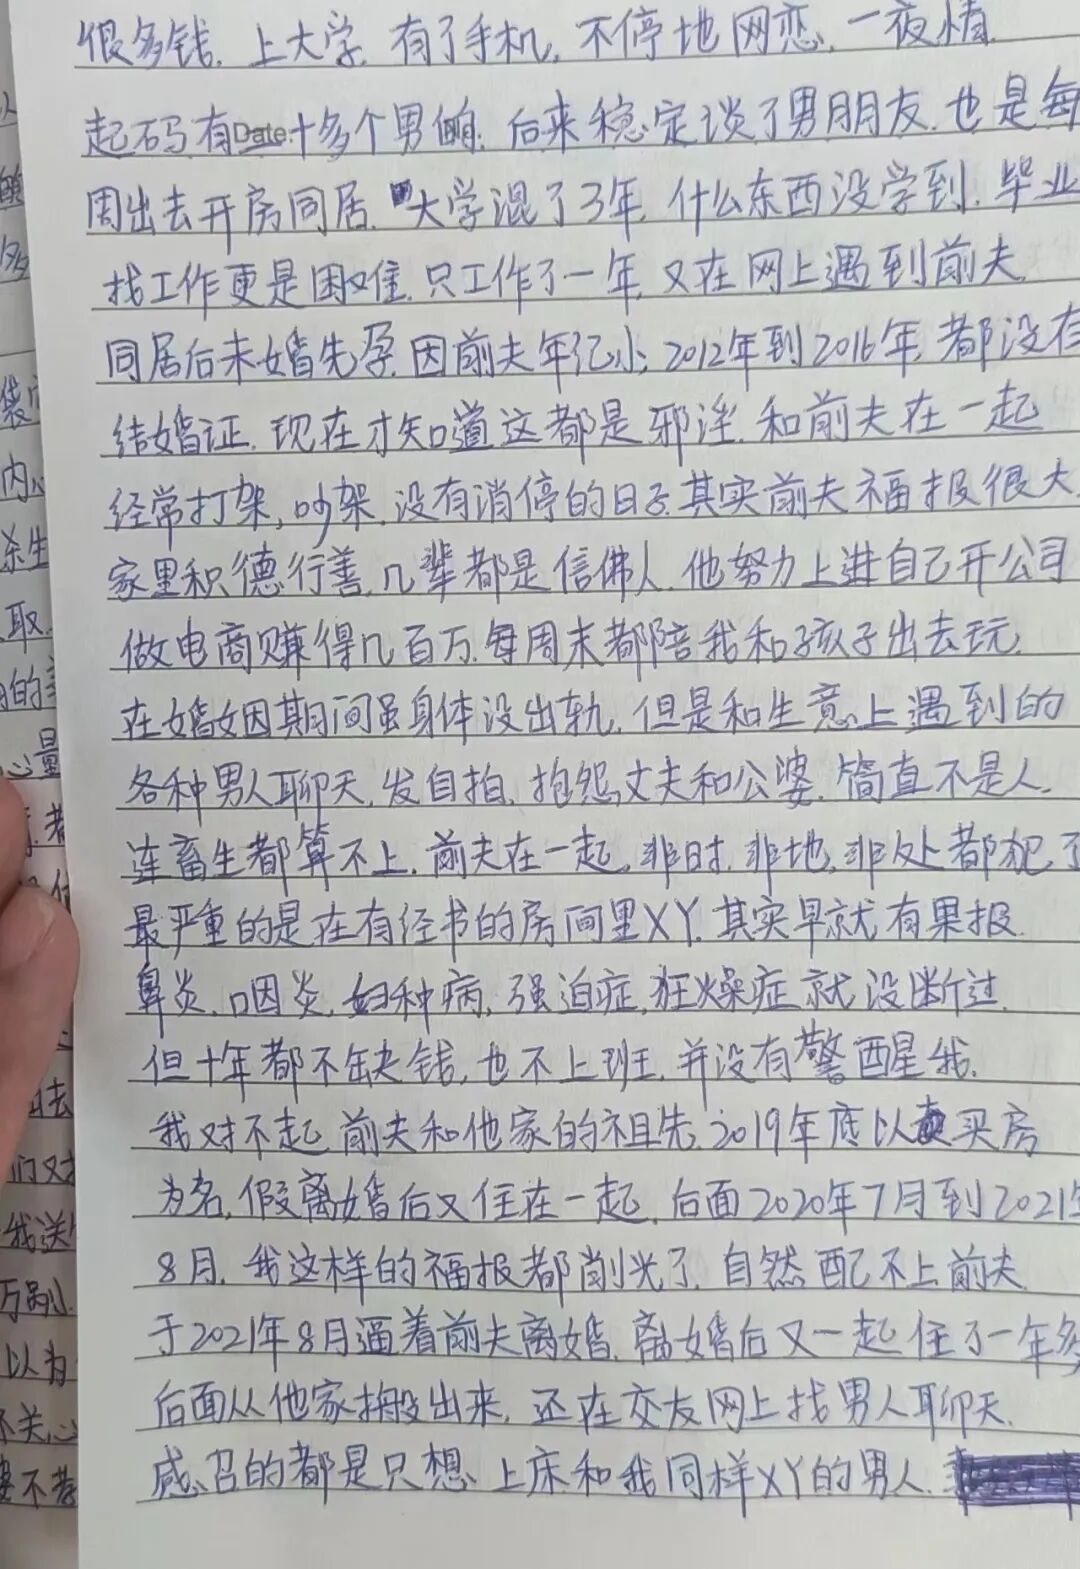 很多钱.上大学.有了手机,不停地网恋.一夜情.
起码有Date十多个男的.后来稳定谈了男朋友.也是每
周出去开房同居.大学混了3年.什么东西没学到.毕业
找工作更是困难.只工作了一年,又在网上遇到前夫.
同居后未婚先孕.因前夫年纪小,2012年到2016年,都没有
结婚证.现在才知道这都是邪淫.和前夫在一起
经常打架,吵架.没有消停的日子.其实前夫福报很大.
家里积德行善,几辈都是信佛人.他努力上进自己开公司
做电商赚得几百万.每周末都陪我和孩子出去玩.
在婚姻因期间虽身体没出轨.但是和生意上遇到的
各种男人聊天.发自拍.抱怨丈夫和公婆.简直不是人.
连畜生都算不上.前夫在一起,非时.非地,非处都犯了
最严重的是在有经书的房间里XY.其实早就有果报.
鼻炎.咽炎.妇种病,强迫症,狂燥症就没断过.
但十年都不缺钱,也不上班.并没有警醒我.
我对不起前夫和他家的祖先.2019年底以买房
为名,假离婚后又住在一起.后面2020年7月到2021年
8月.我这样的福报都削光了.自然配不上前夫.
于2021年8月逼着前夫离婚.离婚后又一起住了一年多
后面从他家搬出来,还在交友网上找男人聊天.
感召的都是只想上床和我同样XY的男人.